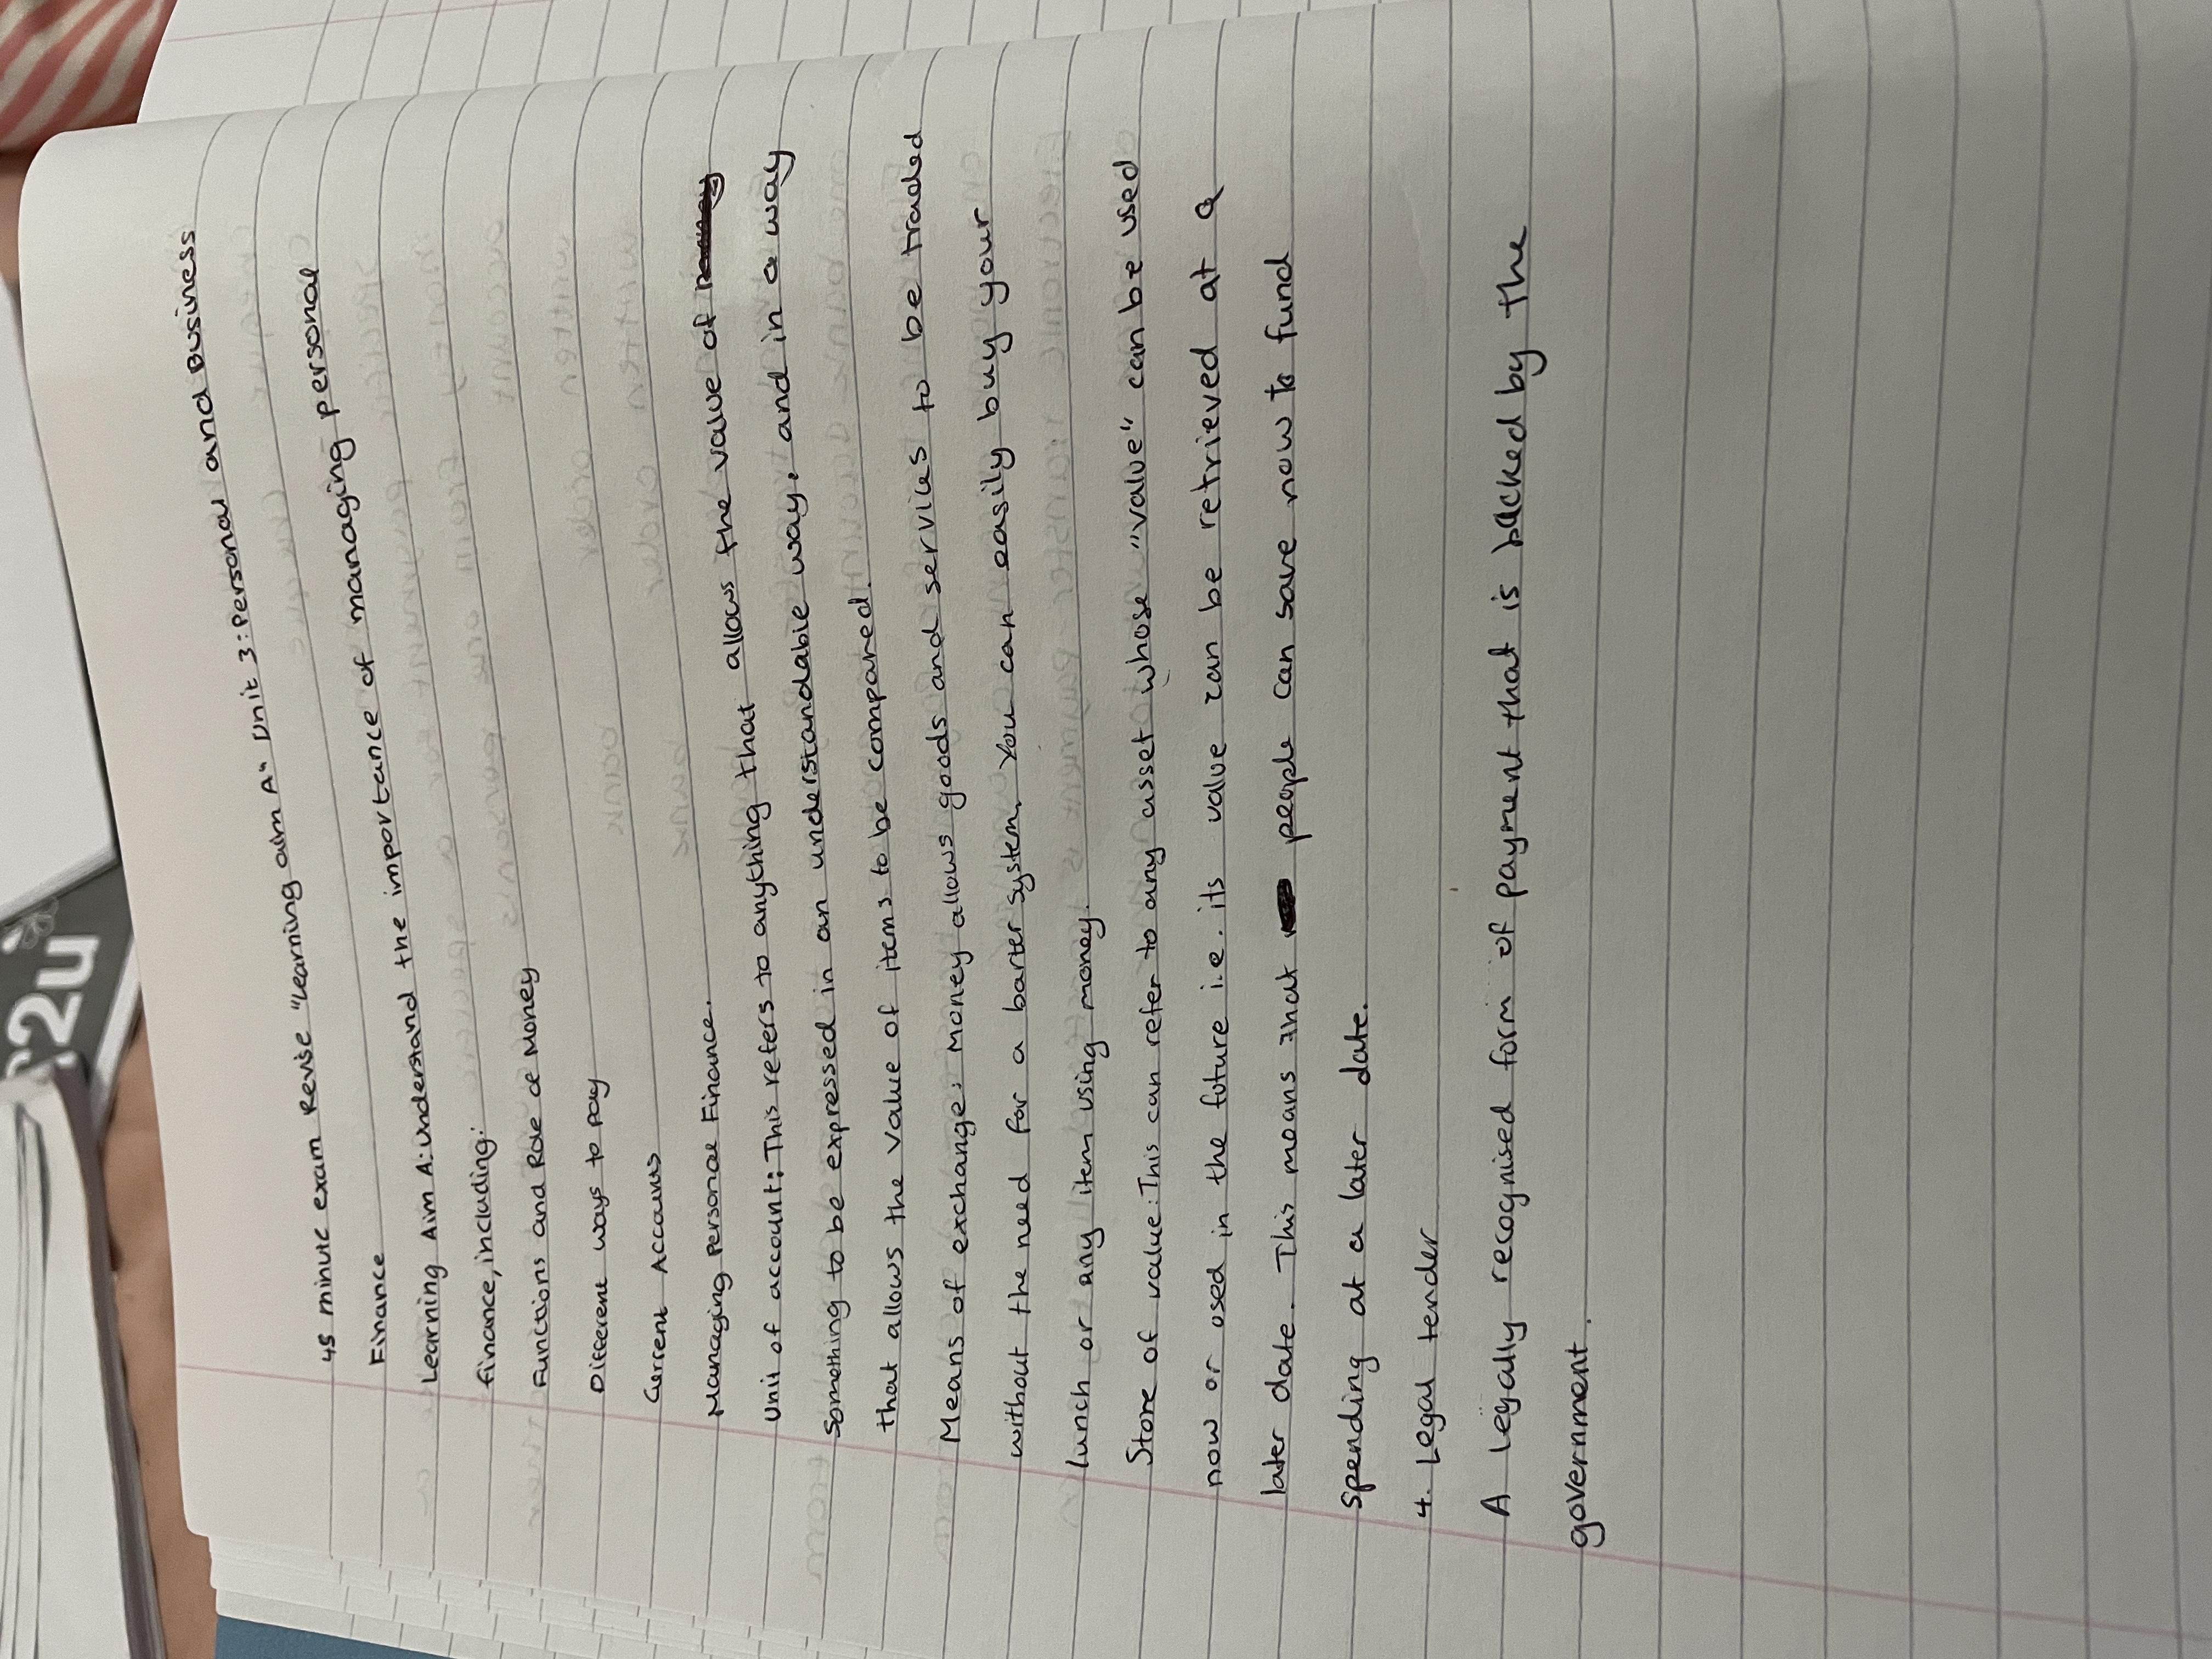 45 minute exam Revise "Learning aim A" Unit 3: Personal and Business
Finance
Learning Aim A: Understand the importance of managing personal
finance, including:
Functions and Role of Money
Different ways to pay
Current Accouns
Managing Personal Finance.
Unit of account: This refers to anything that allows the value of
something to be expressed in an understandable way, and in a way
that allows the value of items to be compared.
Means of exchange: Money allows goods and services to be traded
without the need for a barter system. You can easily buy your
lunch or any item using money.
Store of value: This can refer to any asset whose "value" can be used
now or used in the future i.e. its value can be retrieved at a
later date. This means that people can save now to fund
spending at a later date.
4. Legal tender
A legally recognised form of payment that is backed by the
government.
2u